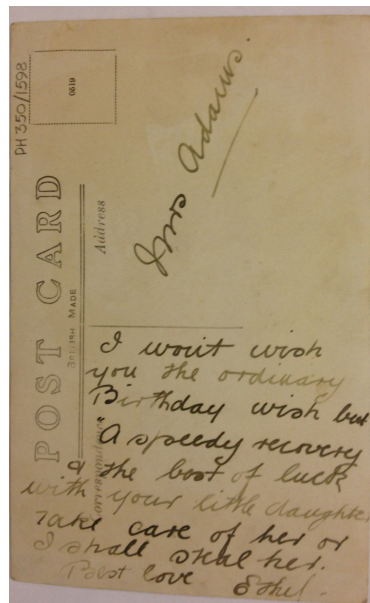 PH350/1598
0519
POST CARD
BRITISH MADE
Address
Correspondence
Mrs Adams.
I won't wish
you the ordinary
Birthday wish but
"A speedy recovery
& the best of luck
with your little daughter
Take care of her or
I shall steal her.
Best love Ethel.